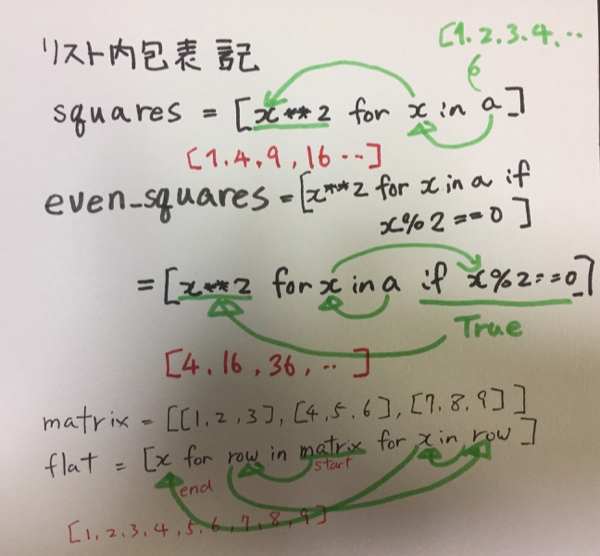 [1.2.3.4...
リスト内包表記
squares = [x**2 for x in a]
[1.4.9,16...]
even_squares=[x**2 for x in a if
x%2==0]
=[x**2 for x in a if x%2==0]
True
[4,16,36,...]
matrix = [[1,2,3],[4,5,6],[7,8,9]]
flat = [x for row in matrix for x in row]
start
end
[1,2,3,4,5,6,7,8,9]